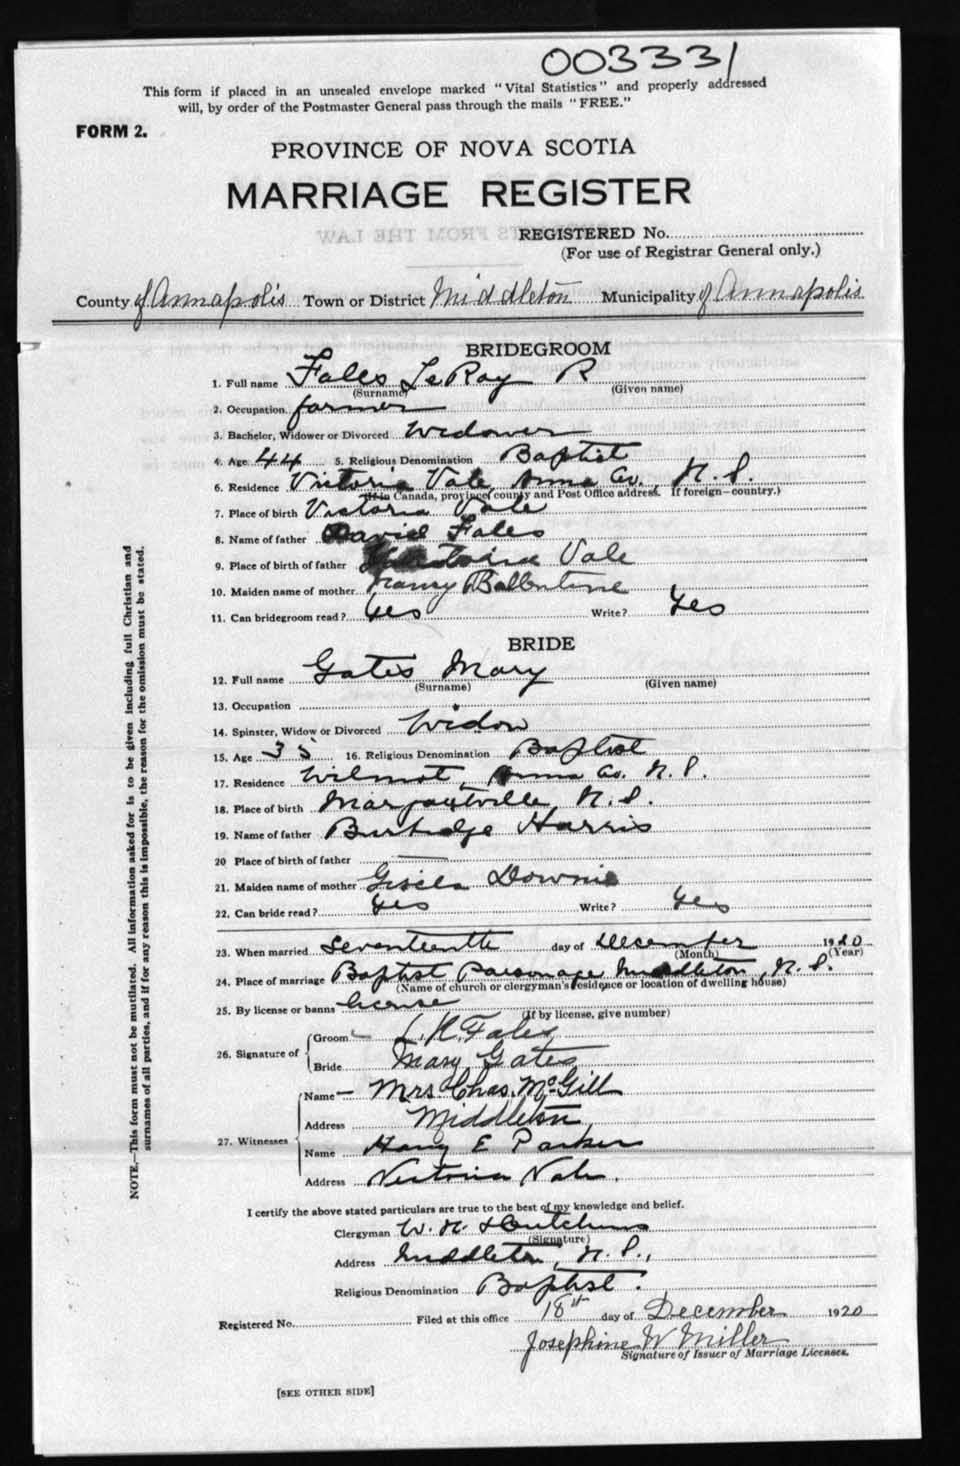 003331
This form if placed in an unsealed envelope marked "Vital Statistics" and properly addressed
will, by order of the Postmaster General pass through the mails "FREE."
FORM 2.
PROVINCE OF NOVA SCOTIA
MARRIAGE REGISTER
REGISTERED No.
(For use of Registrar General only.)
County of Annapolis Town or District Middleton Municipality of Annapolis
BRIDEGROOM
1. Full name Fales LeRoy R
(Surname) (Given name)
2. Occupation farmer
3. Bachelor, Widower or Divorced Widower
4. Age 44 5. Religious Denomination Baptist
6. Residence Victoria Vale, Anna Co., N. S.
(If in Canada, province, county and Post Office address. If foreign—country.)
7. Place of birth Victoria Vale
8. Name of father David Fales
9. Place of birth of father Vale
10. Maiden name of mother Nancy Ballentine
11. Can bridegroom read? Yes Write? Yes
BRIDE
12. Full name Gates Mary
(Surname) (Given name)
13. Occupation
14. Spinster, Widow or Divorced Widow
15. Age 35 16. Religious Denomination Baptist
17. Residence Wilmot, Anna Co. N. S.
18. Place of birth Margaretville, N. S.
19. Name of father Burbidge Harris
20 Place of birth of father
21. Maiden name of mother Downie
22. Can bride read? Yes Write? Yes
23. When married Seventeenth day of December 1920
(Month) (Year)
24. Place of marriage Baptist Parsonage, Middleton, N. S.
(Name of church or clergyman's residence or location of dwelling house)
25. By license or banns license
(If by license, give number)
26. Signature of
Groom L. R. Fales
Bride Mary Gates
27. Witnesses
Name — Mrs. Chas. McGill
Address Middleton
Name Harry E Parker
Address Victoria Vale.
I certify the above stated particulars are true to the best of my knowledge and belief.
Clergyman W. N. Hutchins
(Signature)
Address Middleton, N. S.,
Religious Denomination Baptist.
Registered No. Filed at this office 18th day of December 1920
Josephine W Miller
Signature of Issuer of Marriage Licenses.
[SEE OTHER SIDE]
NOTE.—This form must not be mutilated. All information asked for is to be given including full Christian and
surnames of all parties, and if for any reason this is impossible, the reason for the omission must be stated.